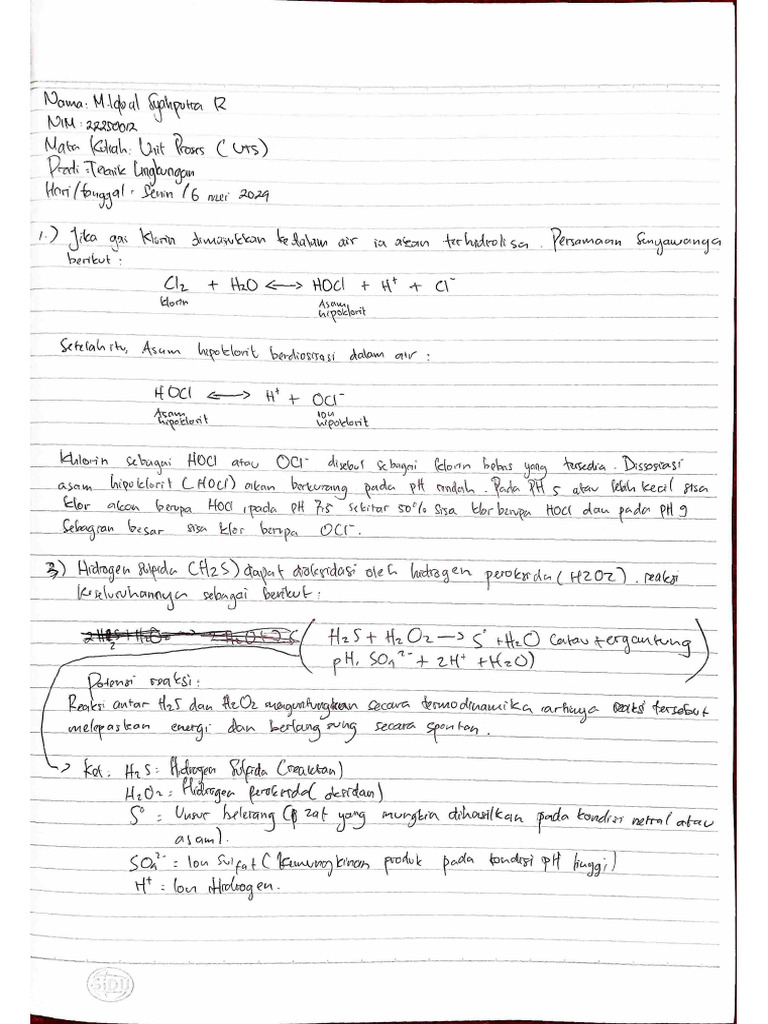 Nama: M.Iqbal Syahputra R
NIM: 22250012
Mata Kuliah: Unit Proses (UTS)
Prodi: Teknik Lingkungan
Hari/tanggal: Senin / 6 mei 2024
1.) Jika gas Klorin dimasukkan kedalam air ia akan terhidrolisa. Persamaan Senyawanya
berikut:
Cl2 + H2O <-> HOCl + H+ + Cl-
klorin Asam
hipoklorit
Setelah itu, Asam hipoklorit berdiosisasi dalam air:
HOCl <-> H+ + OCl-
Asam ion
hipoklorit hipoklorit
Khlorin sebagai HOCl atau OCl- disebut sebagai klorin bebas yang tersedia. Dissosiasi
asam hipoklorit (HOCl) akan berkurang pada pH rendah. Pada PH 5 atau lebih kecil sisa
klor akan berupa HOCl, pada pH 7.5 sekitar 50% sisa klor berupa HOCl dan pada PH 9
sebagian besar sisa klor berupa OCl-.
3) Hidrogen sulfida (H2S) dapat dioksidasi oleh hidrogen peroksida (H2O2). reaksi
keseluruhannya sebagai berikut:
(H2S + H2O2 -> S° + H2O (atau tergantung
pH, SO4 2- + 2H+ + H2O)
Potensi reaksi:
Reaksi antar H2S dan H2O2 menguntungkan secara termodinamika, artinya reaksi tersebut
melepaskan energi dan berlangsung secara spontan.
-> Ket: H2S = Hidrogen Sulfida (reaktan)
H2O2 = Hidrogen peroksida (oksidan)
S° = Unsur belerang (zat yang mungkin dihasilkan pada kondisi netral atau
asam).
SO4 2- = Ion Sulfat (kemungkinan produk pada kondisi pH tinggi)
H+ = Ion Hidrogen.
SIDU